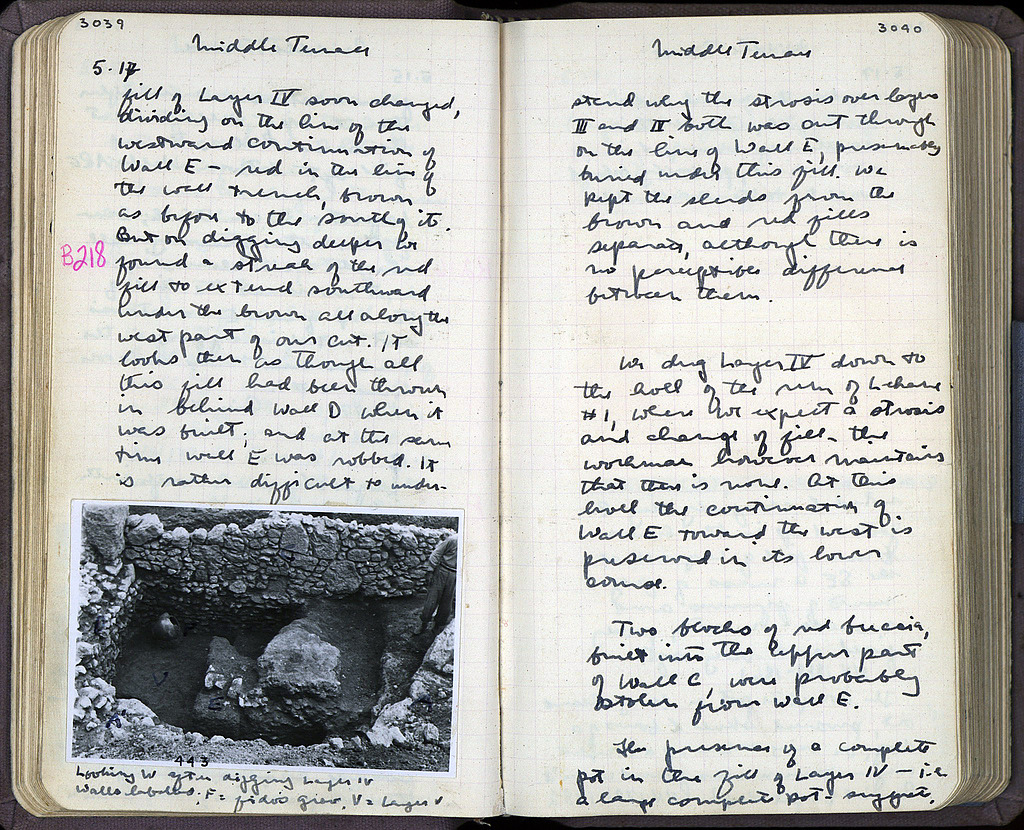 3039
Middle Terrace
5.17
fill of Layer IV soon changed,
dividing on the line of the
westward continuation of
Wall E – red in the line of
the wall trench, brown
as before to the south of it.
But on digging deeper we
B218
found a streak of the red
fill to extend southward
under the brown all along the
west part of our cut. It
looks then as though all
this fill had been thrown
in behind Wall D when it
was built, and at the same
time wall E was robbed. It
is rather difficult to under-
443
Looking W after digging Layer IV
Walls labelled. F = pidos grave. V = Layer V
3040
Middle Terrace
stand why the strosis over layers
III and IV both was cut through
on the line of Wall E, presumably
buried under this fill. We
kept the sherds from the
brown and red fills
separate, although there is
no perceptible difference
between them.
We dug Layer IV down to
the level of the rim of Lekane
#1, where we expect a strosis
and change of fill – the
workman however maintains
that there is none. At this
level the continuation of
Wall E toward the west is
preserved in its lower
course.
Two blocks of red breccia,
built into the upper part
of Wall C, were probably
stolen from Wall E.
The presence of a complete
pot in the fill of Layer IV – i.e.
a large complete pot – suggests